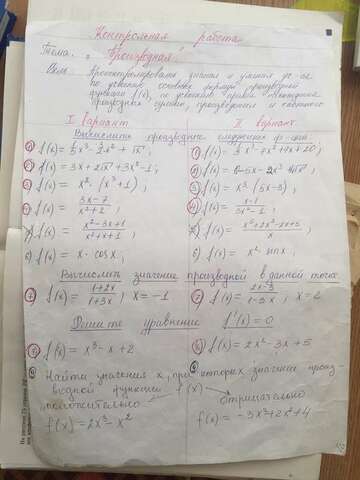 Контрольная работа
Тема. "Производная"
Цель: Проконтролировать знания и умения уч-ся
по усвоению основных формул производной
функции f(x), по усвоению правил нахождения
Производных суммы, произведения и частного
I вариант II вариант
Вычислить производные следующих ф-ций:
1) f(x) = x³ - 2x² + √x; 1) f(x) = x³ - 4x² + 7x + 20;
2) f(x) = 3x + 2√x + 3x² - 1; 2) f(x) =
3) f(x) = x² · (x³ + 1); 3) f(x) = x³ (5x - 3);
4) f(x) = (3x - 7)/(x² + 2); 4) f(x) = (x - 1)/(3x² - 1);
5) f(x) = (x² - 3x + 1)/(x² + x + 1) 5) f(x) =
6) f(x) = x · cos x; 6) f(x) = x² sin x,
Вычислить значение производной в данной точке
7) f(x) = (1 + 2x)/(1 + 3x), x = -1 7) f(x) = (2x - 3)/(1 - 3x); x = 2
Решите уравнение f'(x) = 0
8) f(x) = x³ - x + 2 8) f(x) = 2x² - 3x + 5
9) Найти значения x, при которых значение произ-
водной функции f(x)
положительно отрицательно
f(x) = 2x³ - x² f(x) = -3x³ + 2x² + 4